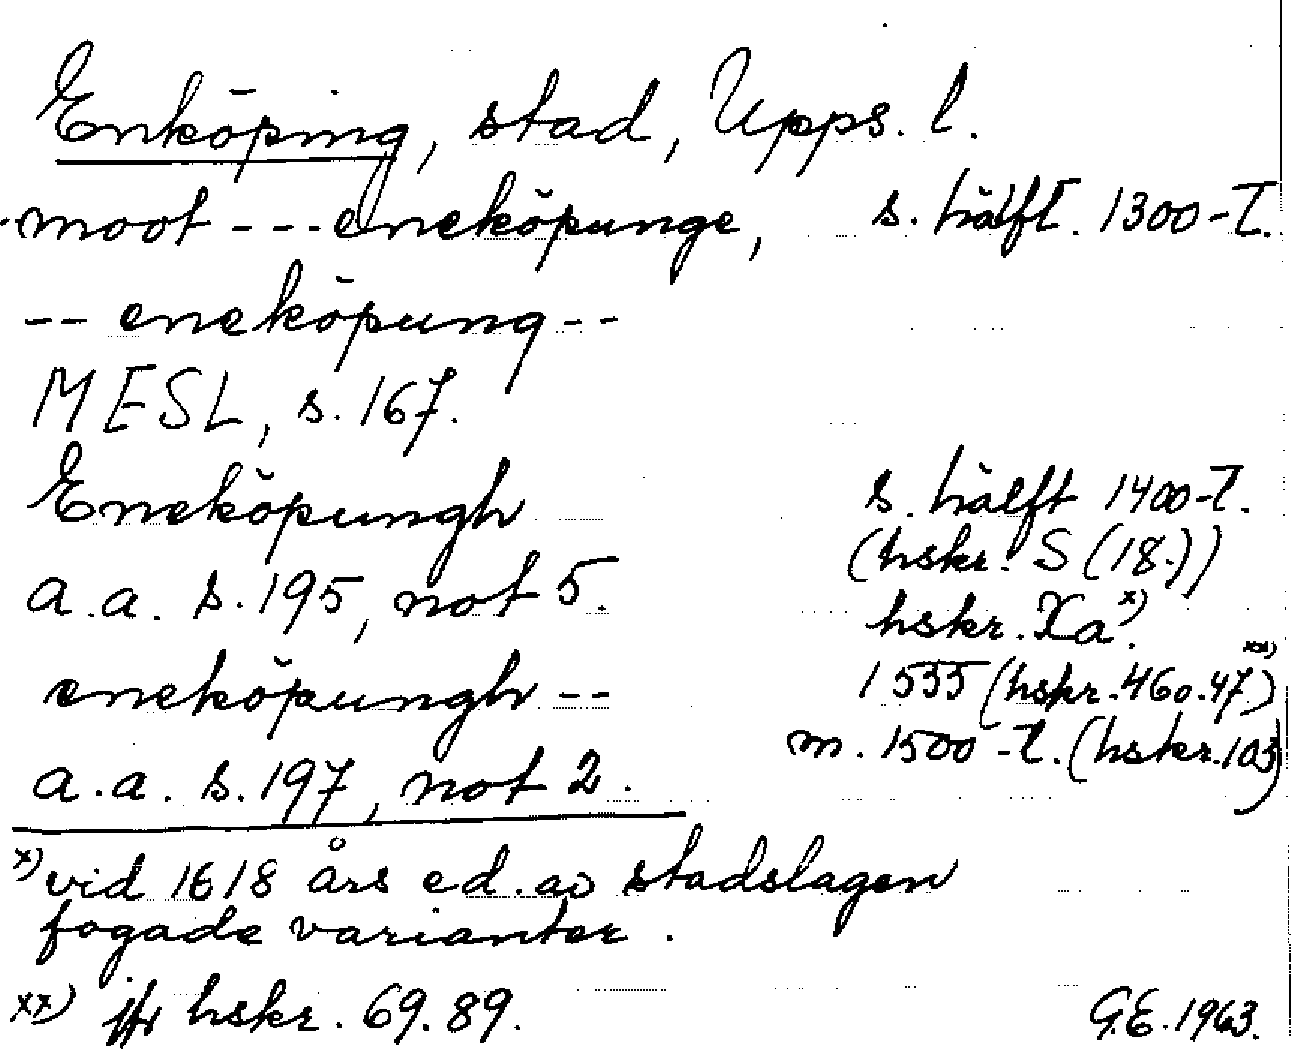 Enköping, stad, Upps. l.
-moot --- eneköpunge, s. hälft. 1300-t.
-- eneköpung --
MESL, s. 167.
Eneköpungh s. hälft 1400-t.
(hskr. S (18.))
a.a. s. 195, not 5. hskr. Xa x).
eneköpungh -- 1535 (hskr. 46o. 47) xx)
m. 1500-t. (hskr. 103)
a.a. s. 197, not 2.
x) vid 1618 års ed. av stadslagen
fogade varianter.
xx) jfr hskr. 69. 89. G.E. 1963.